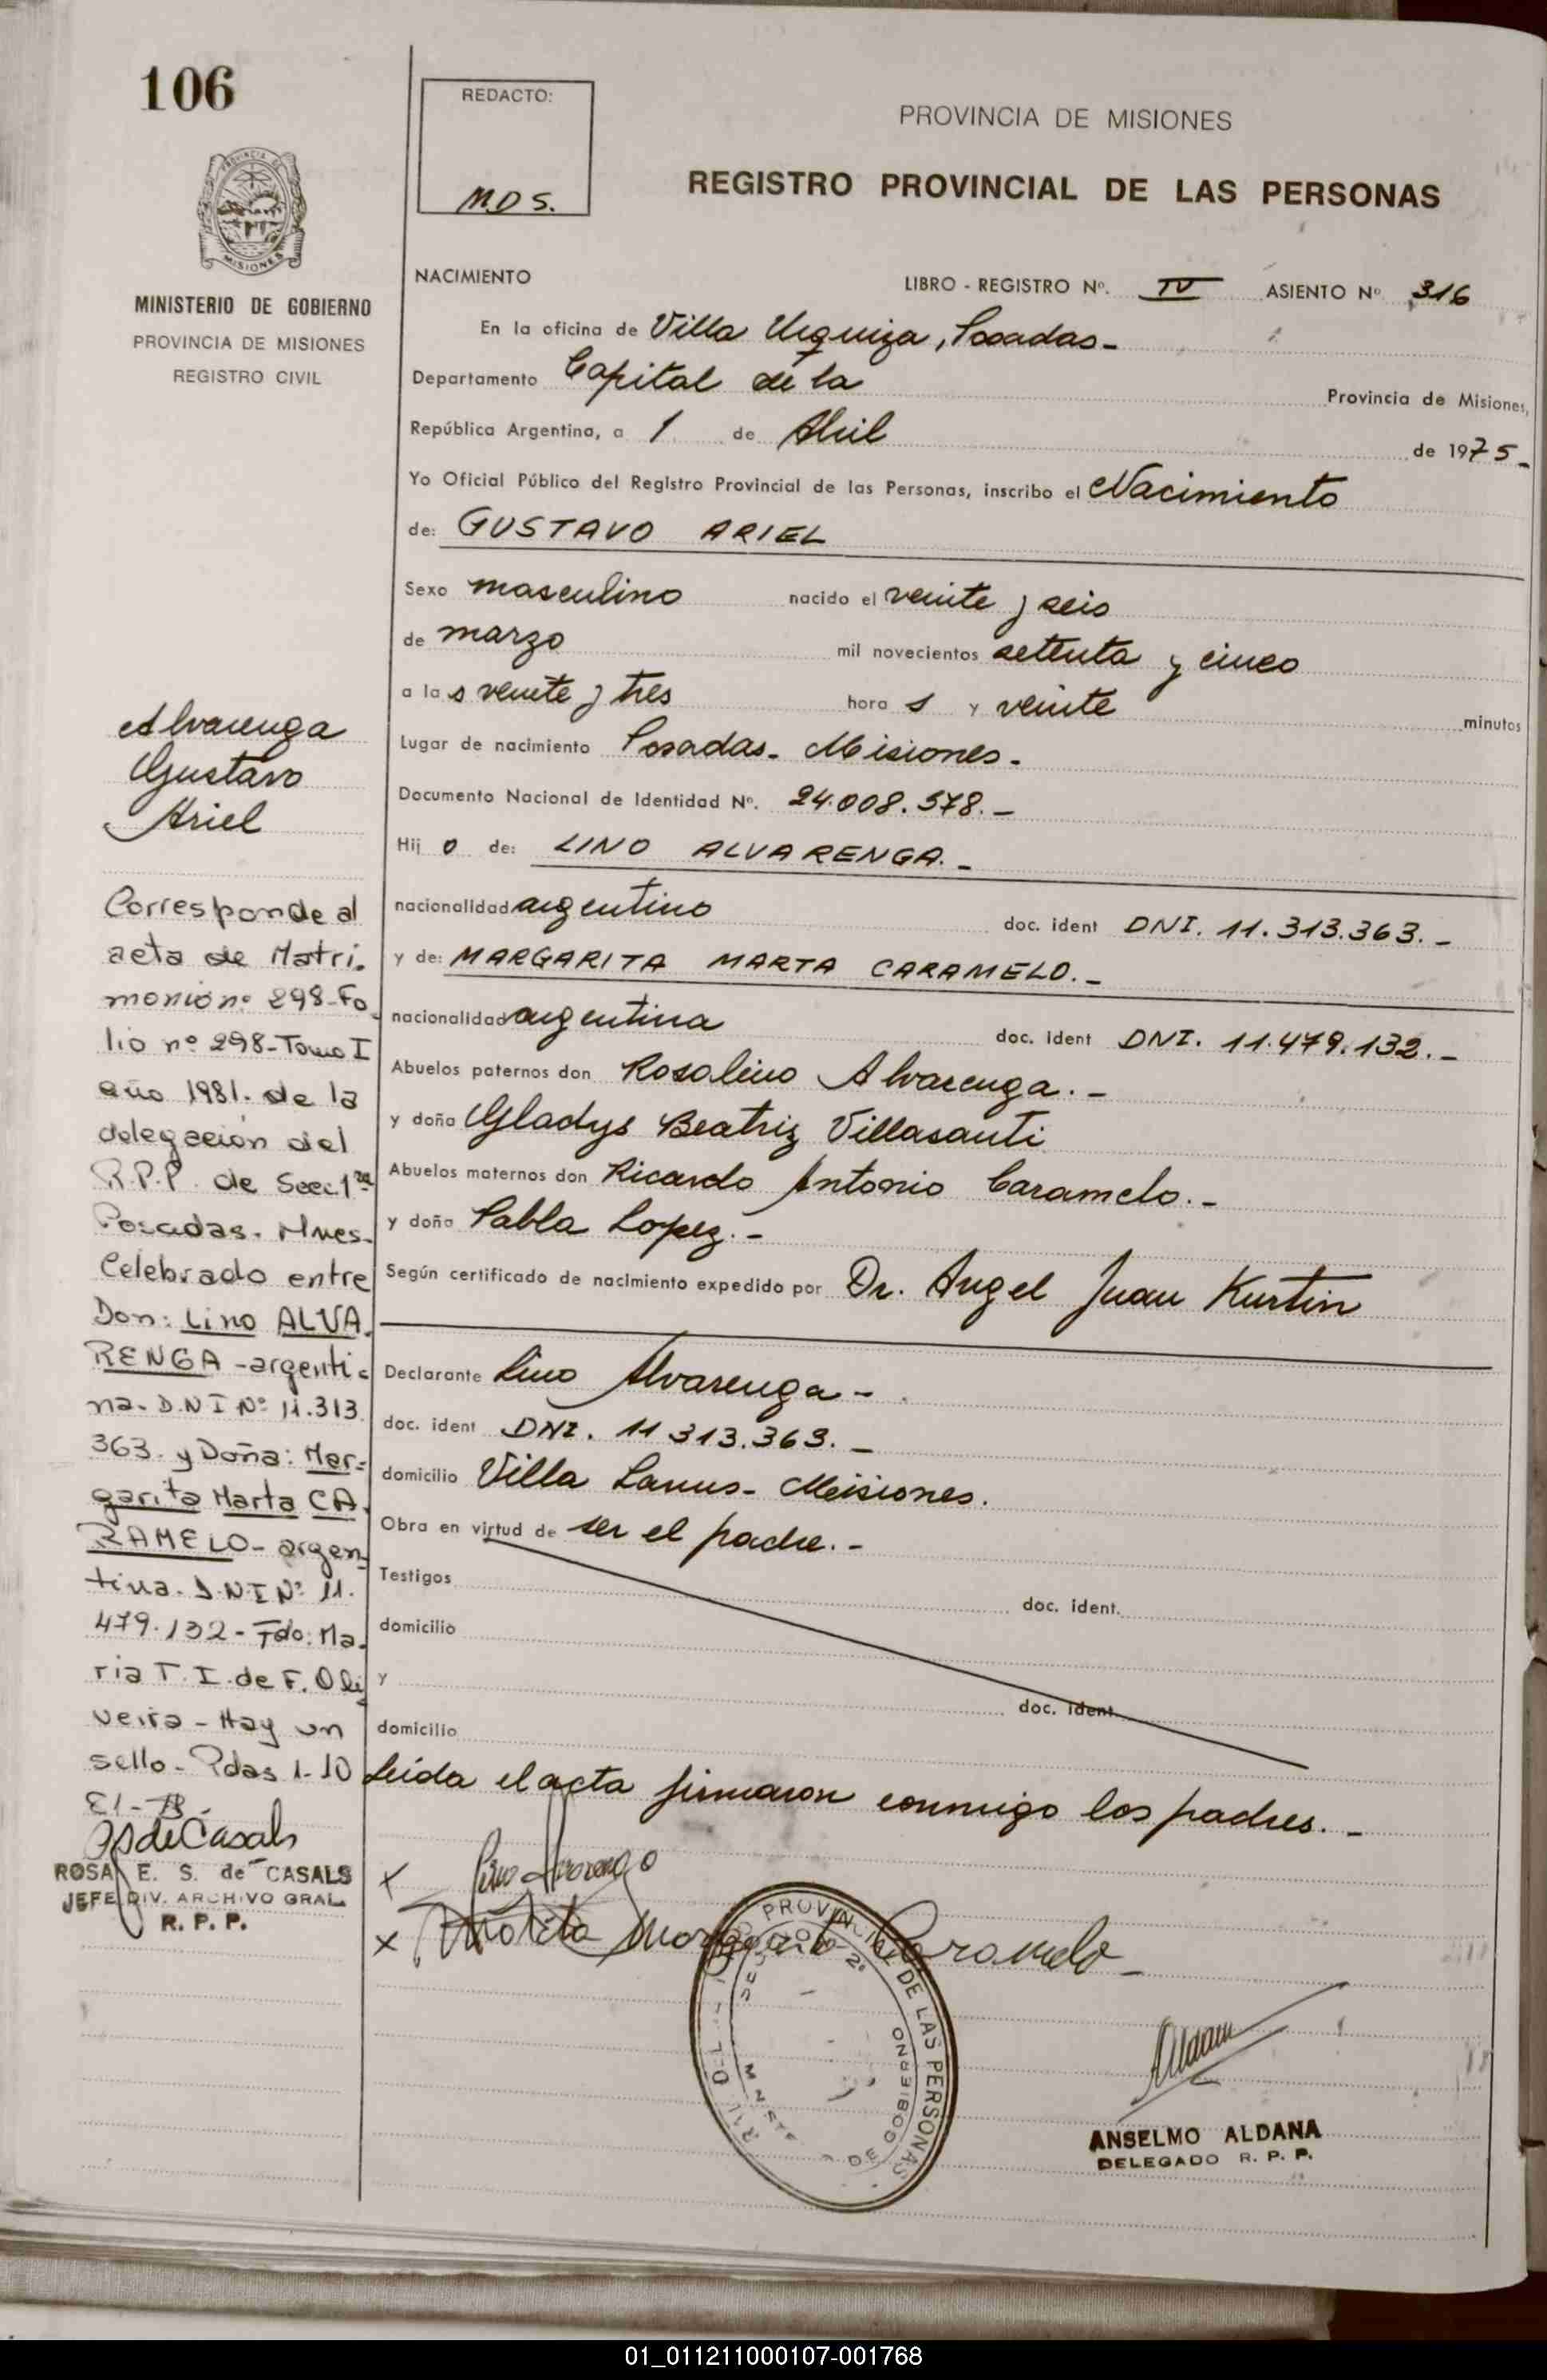 106
REDACTO:
M.D.S.
PROVINCIA DE MISIONES
REGISTRO PROVINCIAL DE LAS PERSONAS
PROVINCIA DE
MISIONES
MINISTERIO DE GOBIERNO
PROVINCIA DE MISIONES
REGISTRO CIVIL
NACIMIENTO LIBRO - REGISTRO Nº. IV ASIENTO Nº 316
En la oficina de Villa Urquiza, Posadas-
Departamento Capital de la Provincia de Misiones,
República Argentina, a 1 de Abril de 1975-
Yo Oficial Público del Registro Provincial de las Personas, inscribo el Nacimiento
de: GUSTAVO ARIEL
Sexo masculino nacido el veinte y seis
de marzo mil novecientos setenta y cinco
a las veinte y tres horas y veinte minutos
Lugar de nacimiento Posadas- Misiones-
Documento Nacional de Identidad Nº. 24.008.578.-
Hijo de: LINO ALVARENGA.-
nacionalidad argentino doc. ident DNI. 11.313.363.-
y de: MARGARITA MARTA CARAMELO.-
nacionalidad argentina doc. ident DNI. 11.479.132.-
Abuelos paternos don Rosalino Alvarenga.-
y doña Gladys Beatriz Villasanti
Abuelos maternos don Ricardo Antonio Caramelo.-
y doña Pabla Lopez.-
Según certificado de nacimiento expedido por Dr. Angel Juan Kurtin
Declarante Lino Alvarenga-
doc. ident DNI. 11 313.363.-
domicilio Villa Lanus- Misiones.
Obra en virtud de ser el padre.-
Testigos doc. ident.
domicilio
y doc. ident
domicilio
Leida el acta firmaron conmigo los padres.-
x Lino Alvarenga
x Marta Margarita Caramelo-
PROVINCIAL DE LAS PERSONAS
DE GOBIERNO
ANSELMO ALDANA
DELEGADO R. P. P.
Alvarenga
Gustavo
Ariel
Corresponde al
acta de Matri-
monio nº 298-Fo-
lio nº 298-Tomo I
año 1981. de la
delegación del
R.P.P. de Secc. 1ra
Posadas. Mnes-
Celebrado entre
Don: Lino ALVA-
RENGA -argenti-
na- D.N I Nº 11.313.
363. y Doña: Mar-
garita Marta CA-
RAMELO- argen-
tina. D.N.I Nº 11.
479.132- Fdo: Ma-
ria T. I. de F. Oli-
veira - Hay un
sello- Pdas 1-10
81-
RSdeCasals
ROSA E. S. de CASALS
JEFE DIV. ARCHIVO GRAL.
R. P. P.
01_011211000107-001768